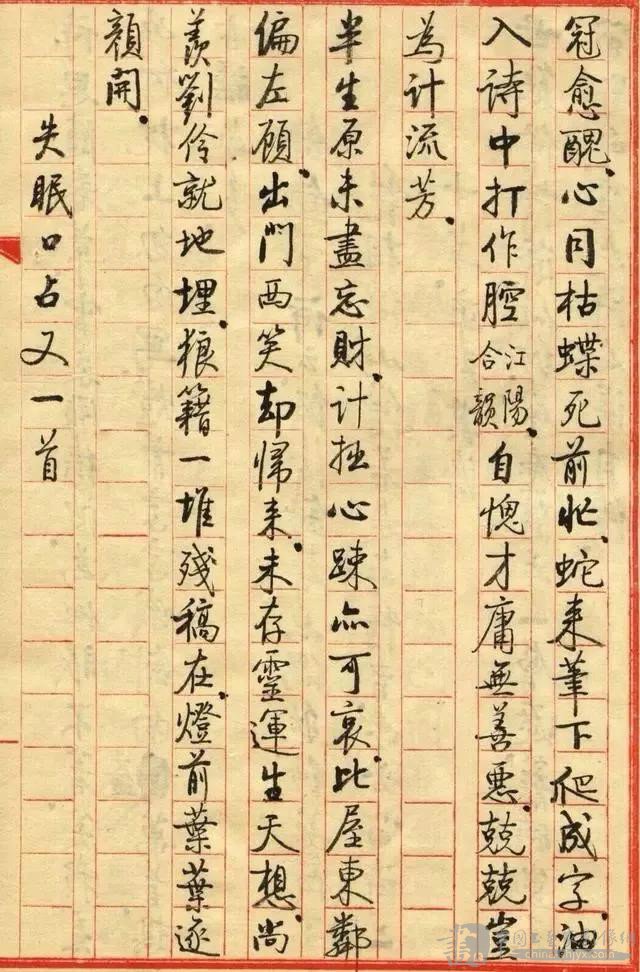 冠愈醜、心同枯蝶死前忙、蛇来筆下爬成字、油
入诗中打作腔江陽合韻、自愧才庸無善惡、兢兢豈
為计流芳、
半生原未盡忘財、计拙心疎亦可哀、比屋東鄰
偏左顾、出門西笑却帰来、未存靈運生天想、尚
羡劉伶就地埋、狼籍一堆殘稿在、燈前葉葉逐
顏開、
失眠口占又一首